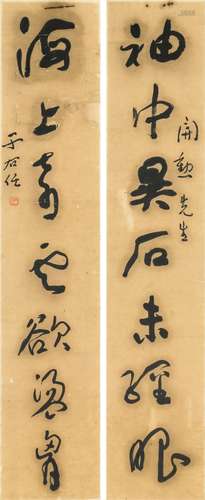 開勳先生
袖中異石未經眼
海上奇雲欲盪胸
于右任